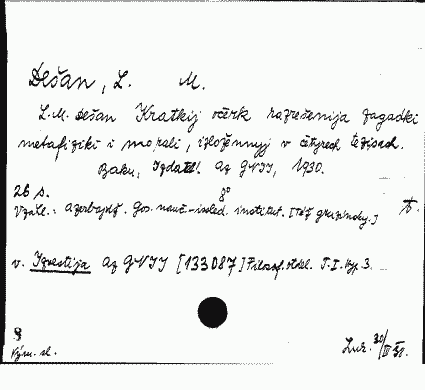 Dešan, L. M.
L.M. Dešan Kratkij očerk razrešenija zagadki
metafiziki i morali, izložennyj v četyrech tezisach.
Baku, Izdatel. Az GNII, 1930.
26 s. 8°
Vzdĕl.: Azerbajdž. Gos. nauč.-issled. institut.
v. Izvestija Az GNII [133087] Filosof. otdel. T. I. Vyp. 3.
8
Vým. sl.